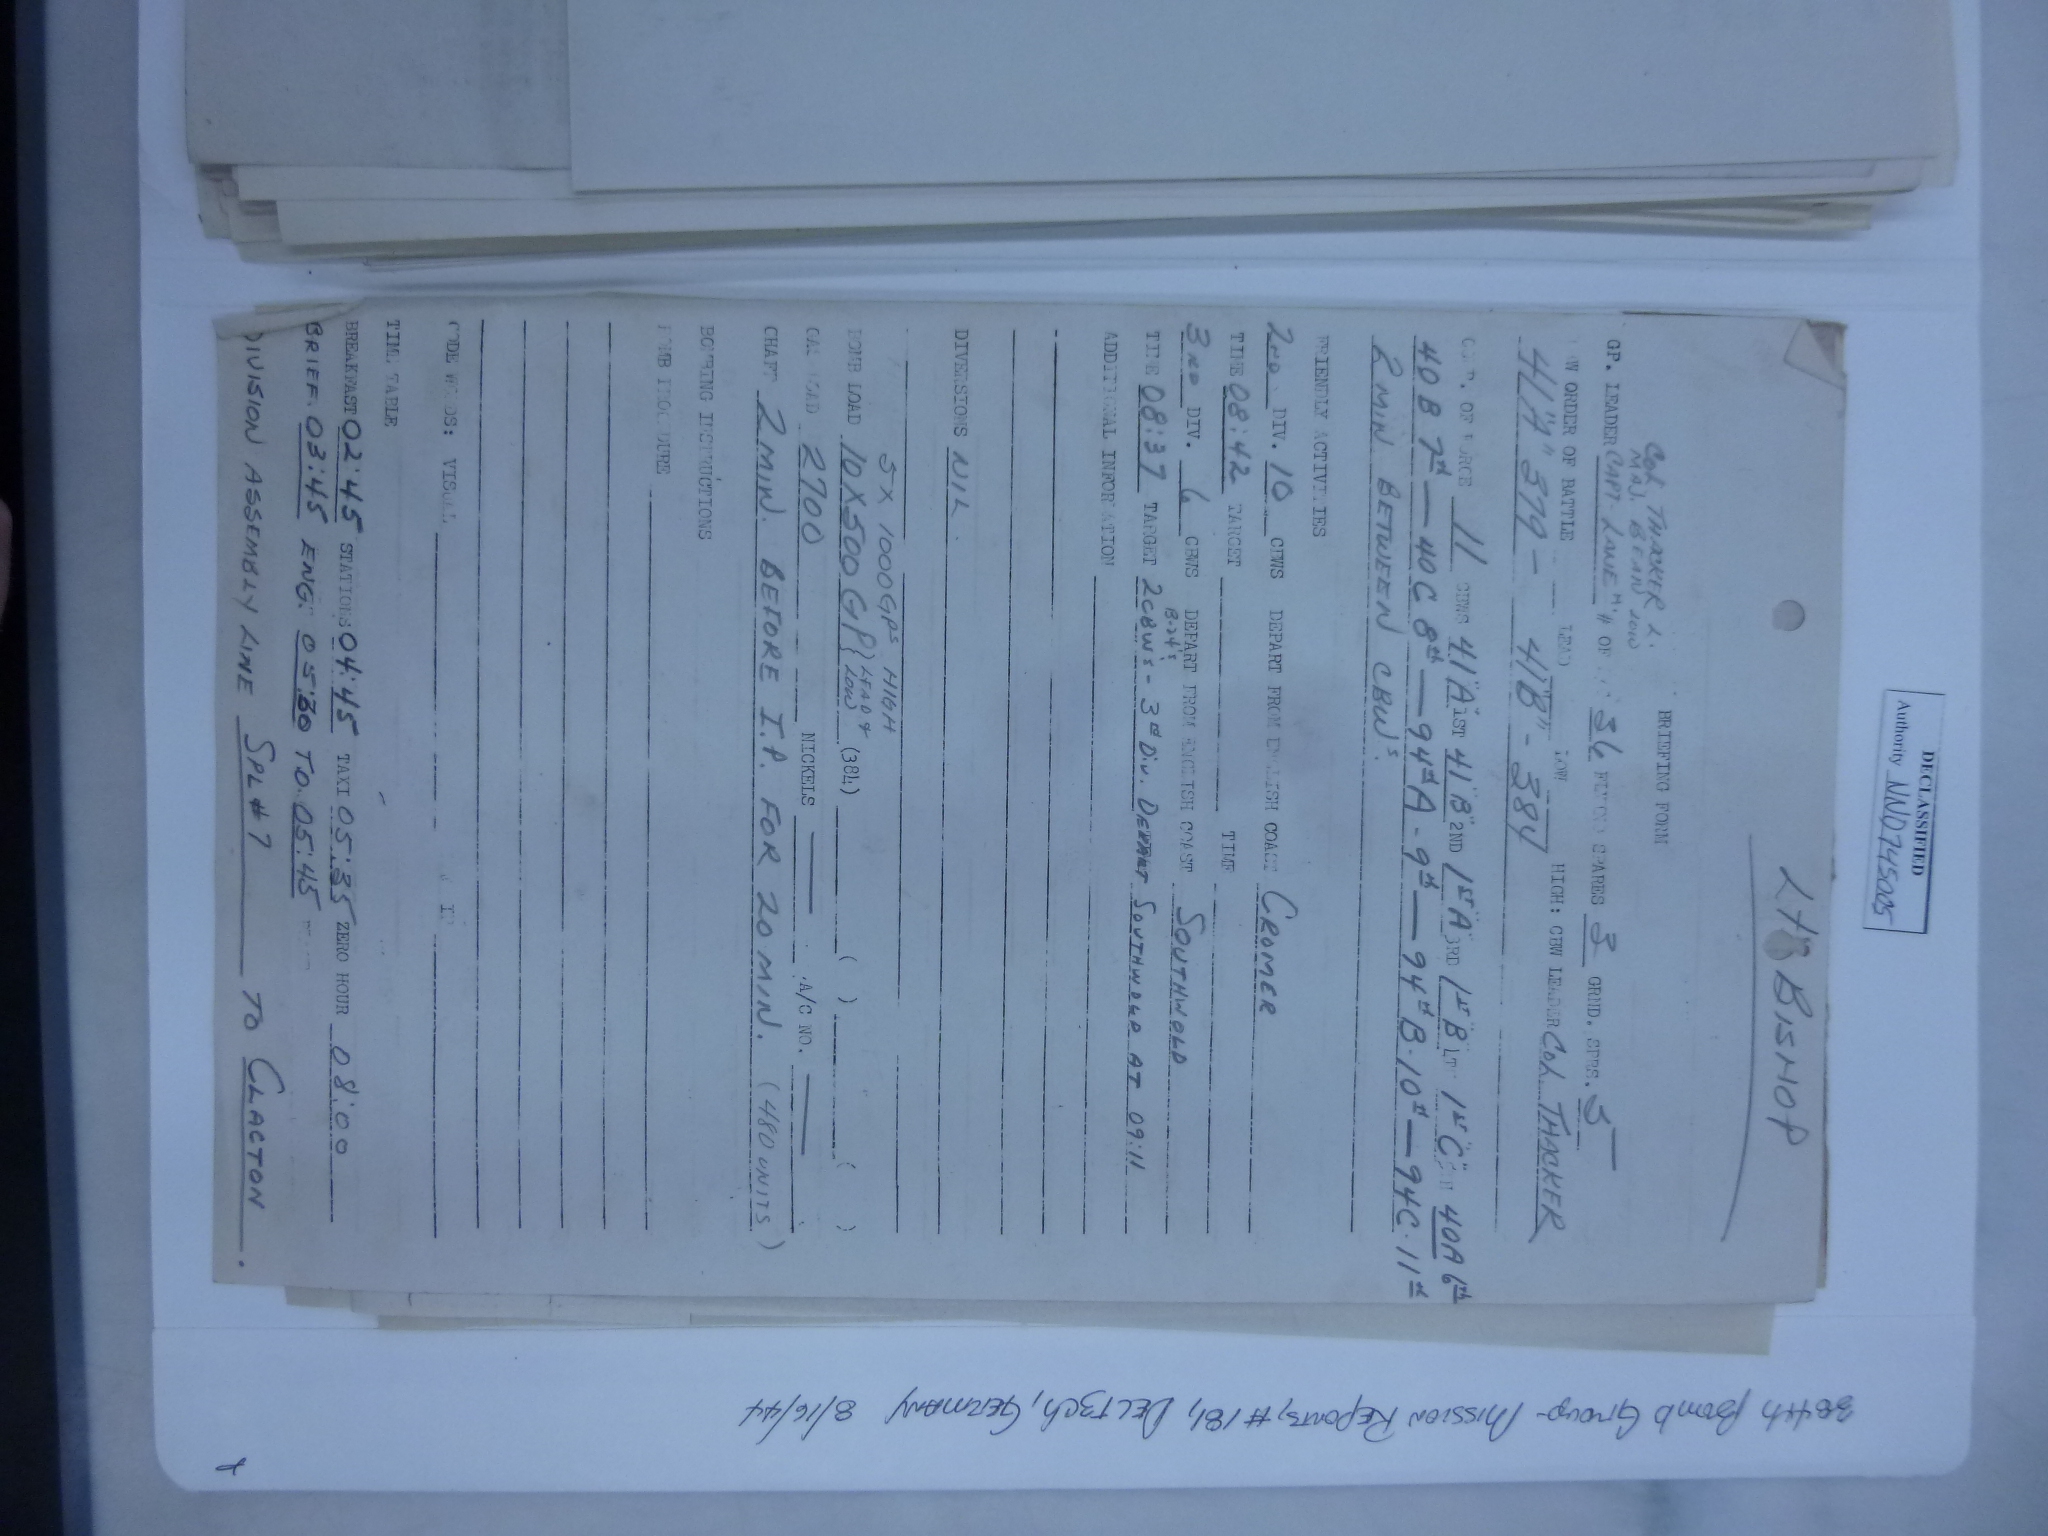 DECLASSIFIED
Authority NND745005
Lt BISHOP
BRIEFING FORM
COL THACKER L.
MAJ. BEAN LOW
GP. LEADER CAPT. LANE "H" OF 36 FLYING SPARES 3 GRND. SPRS. 5
ORDER OF BATTLE LEAD LOW HIGH: CBW LEADER COL THACKER
41"A" 379 - 41"B" - 384
OF FORCE 11 CBWS 41"A" 1ST 41"B" 2ND 1ST"A" 3RD 1ST"B" 4T 1ST"C" 40A 6th
40B 7th — 40C 8th — 94th A - 9th — 94th B. 10th — 94C. 11th
2 MIN BETWEEN CBWs.
FRIENDLY ACTIVITIES
2ND DIV. 10 CBWS DEPART FROM ENGLISH COAST CROMER
TIME 08:42 TARGET TIME
3RD DIV. 6 CBWS DEPART FROM ENGLISH COAST SOUTHWOLD
B-24's
TIME 08:37 TARGET 2CBWs - 3rd DIV. DEPART SOUTHWOLD AT 09:11
ADDITIONAL INFORMATION
DIVERSIONS NIL.
5 X 1000 GPs HIGH
BOMB LOAD 10X500 GP} LEAD & LOW (384) ( ) ( )
GAS LOAD 2700 NICKELS — A/C NO. —
CHAFF 2 MIN. BEFORE I.P. FOR 20 MIN. (480 UNITS)
BOMBING INSTRUCTIONS
BOMB PROCEDURE
CODE WORDS: VISUAL
TIME TABLE
BREAKFAST 02:45 STATIONS 04:45 TAXI 05:35 ZERO HOUR 08:00
BRIEF. 03:45 ENG. 05:30 TO 05:45
DIVISION ASSEMBLY LINE SPL#7 TO CLACTON.
384th Bomb Group - Mission Reports, #181, Delitzch, Germany 8/16/44